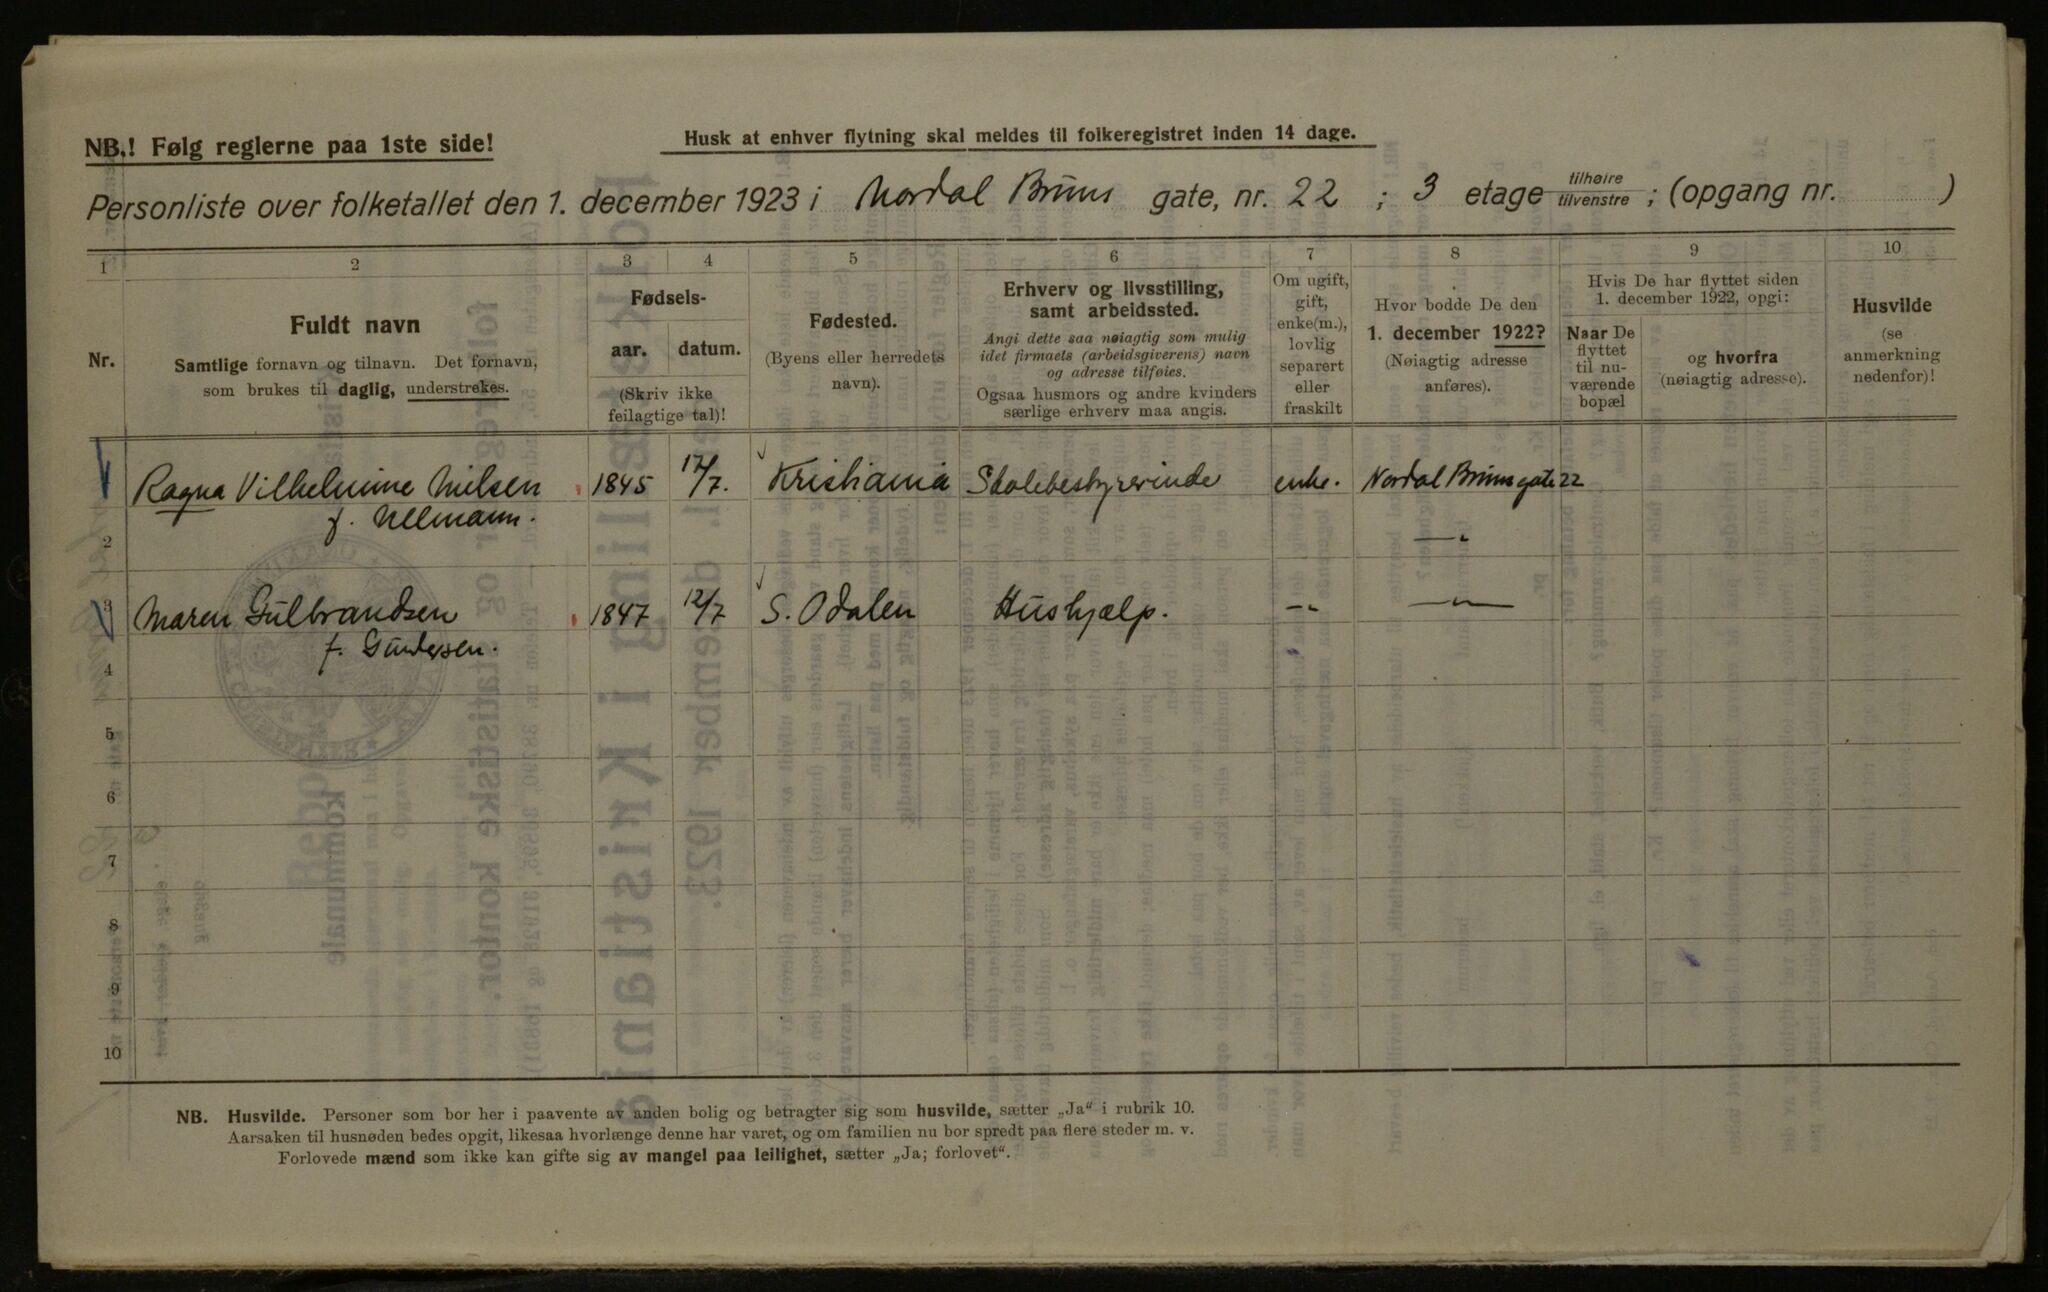 NB.! Følg reglerne paa 1ste side!
Husk at enhver flytning skal meldes til folkeregistret inden 14 dage.
Personliste over folketallet den 1. december 1923 i Nordal Bruns gate, nr. 22 ; 3 etage tilhøire/tilvenstre ; (opgang nr. )
1 2 3 4 5 6 7 8 9 10
Nr.
Fuldt navn
Samtlige fornavn og tilnavn. Det fornavn,
som brukes til daglig, understrekes.
Fødsels-
aar. datum.
(Skriv ikke
feilagtige tal)!
Fødested.
(Byens eller herredets
navn).
Erhverv og livsstilling,
samt arbeidssted.
Angi dette saa nøiagtig som mulig
idet firmaets (arbeidsgiverens) navn
og adresse tilføies.
Ogsaa husmors og andre kvinders
særlige erhverv maa angis.
Om ugift,
gift,
enke(m.),
lovlig
separert
eller
fraskilt
Hvor bodde De den
1. december 1922?
(Nøiagtig adresse
anføres).
Hvis De har flyttet siden
1. december 1922, opgi:
Naar De
flyttet
til nu-
værende
bopæl
og hvorfra
(nøiagtig adresse).
Husvilde
(se
anmerkning
nedenfor)!
Ragna Vilhelmine Nielsen 1845 17/7. Kristiania Skolebestyrerinde enke. Nordal Brunsgate 22
f. Ullmann.
2 —„
3 Maren Gulbrandsen 1847 12/7 S. Odalen Hushjælp. -„- —„—
f. Gundersen.
4
5
6
7
8
9
10
NB. Husvilde. Personer som bor her i paavente av anden bolig og betragter sig som husvilde, sætter „Ja“ i rubrik 10.
Aarsaken til husnøden bedes opgit, likesaa hvorlænge denne har varet, og om familien nu bor spredt paa flere steder m. v.
Forlovede mænd som ikke kan gifte sig av mangel paa leilighet, sætter „Ja; forlovet“.